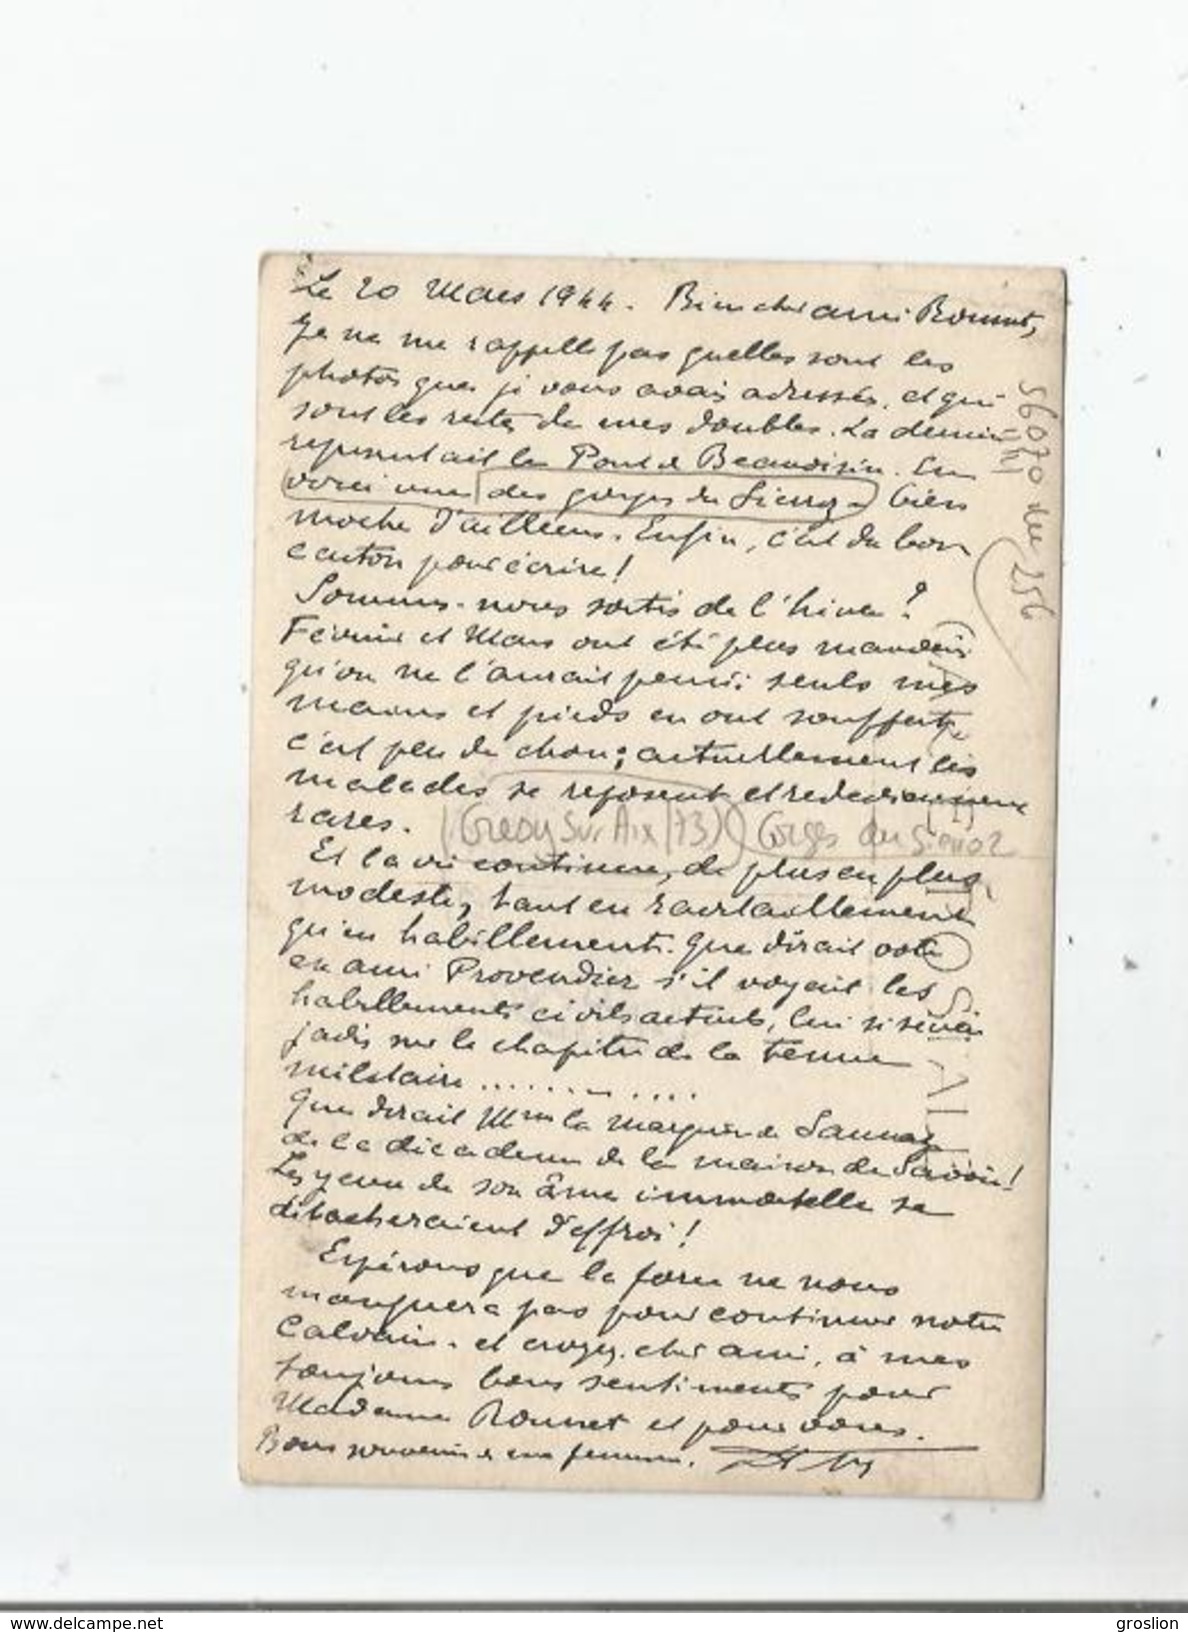 Le 20 Mars 1944. Bien cher ami Bonnet,
Je ne me rappelle pas quelles sont les
photos que je vous avais adressées, et qui
sont les restes de mes doubles. La dernière
représentait le Pont de Beauvoisin. En
voici une des gorges du Sierroz - bien
moche d'ailleurs. Enfin, c'est du bon
carton pour écrire!
Sommes-nous sortis de l'hiver?
Février et Mars ont été plus mauvais
qu'on ne l'aurait pensé; seuls mes
mains et pieds en ont souffert,
c'est peu de chose; actuellement les
malades se reposent et redeviennent
rares.
(Gresy sur Aix (73)) Gorges du Sierroz
Et la vie continue, de plus en plus
modeste, tant en ravitaillement
qu'en habillements. Que dirait votre
ex ami Provendier s'il voyait les
habillements civils actuels, lui si sévère
jadis sur le chapitre de la tenue
militaire ..........
Que dirait Mme la marquise de
de la décadence de la maison de Savoie!
Les yeux de son âme immortelle se
détacheraient d'effroi!
Espérons que la force ne nous
manquera pas pour continuer notre
Calvaire. et croyez, cher ami, à mes
toujours bons sentiments pour
Madame Bonnet et pour vous.
Bons souvenirs de ma femme.
56070 du 256
delcampe.net
groslion